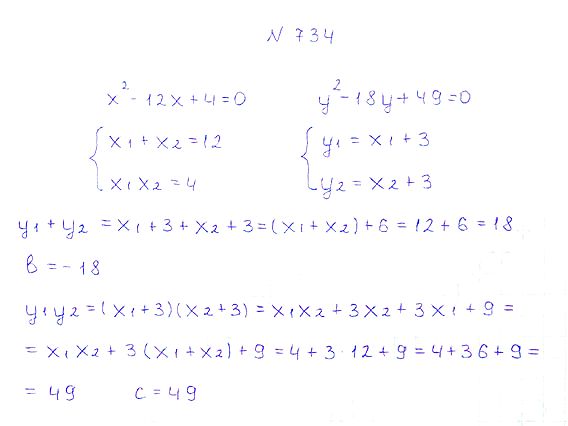 N 734
x² - 12x + 4 = 0 y² - 18y + 49 = 0
x₁ + x₂ = 12 y₁ = x₁ + 3
x₁x₂ = 4 y₂ = x₂ + 3
y₁ + y₂ = x₁ + 3 + x₂ + 3 = (x₁ + x₂) + 6 = 12 + 6 = 18
b = -18
y₁y₂ = (x₁ + 3)(x₂ + 3) = x₁x₂ + 3x₂ + 3x₁ + 9 =
= x₁x₂ + 3(x₁ + x₂) + 9 = 4 + 3 · 12 + 9 = 4 + 36 + 9 =
= 49 c = 49